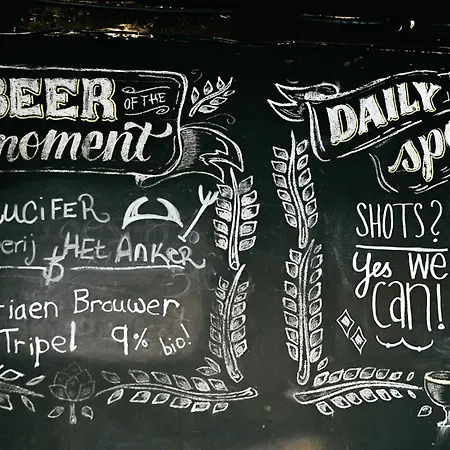 BEER OF THE
moment
LUCIFER
erij HET ANKER
riaen Brouwer
Tripel 9% bio!
DAILY
spe
SHOTS?
Yes we
can!